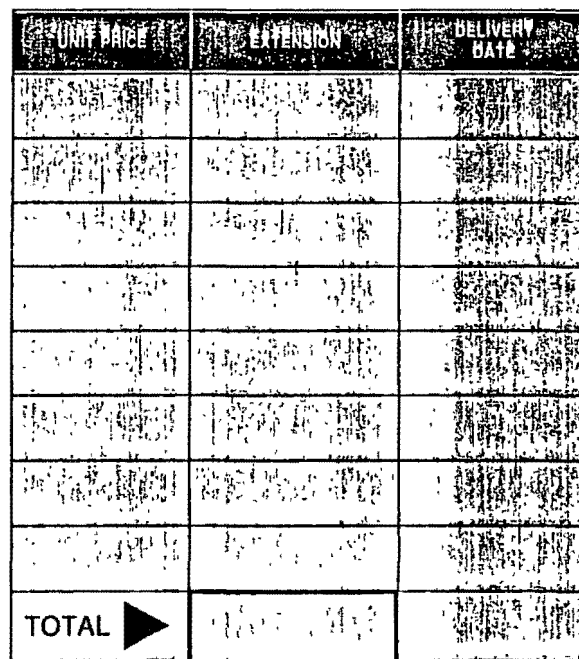 UNIT PRICE
EXTENSION
DELIVERY
DATE
TOTAL